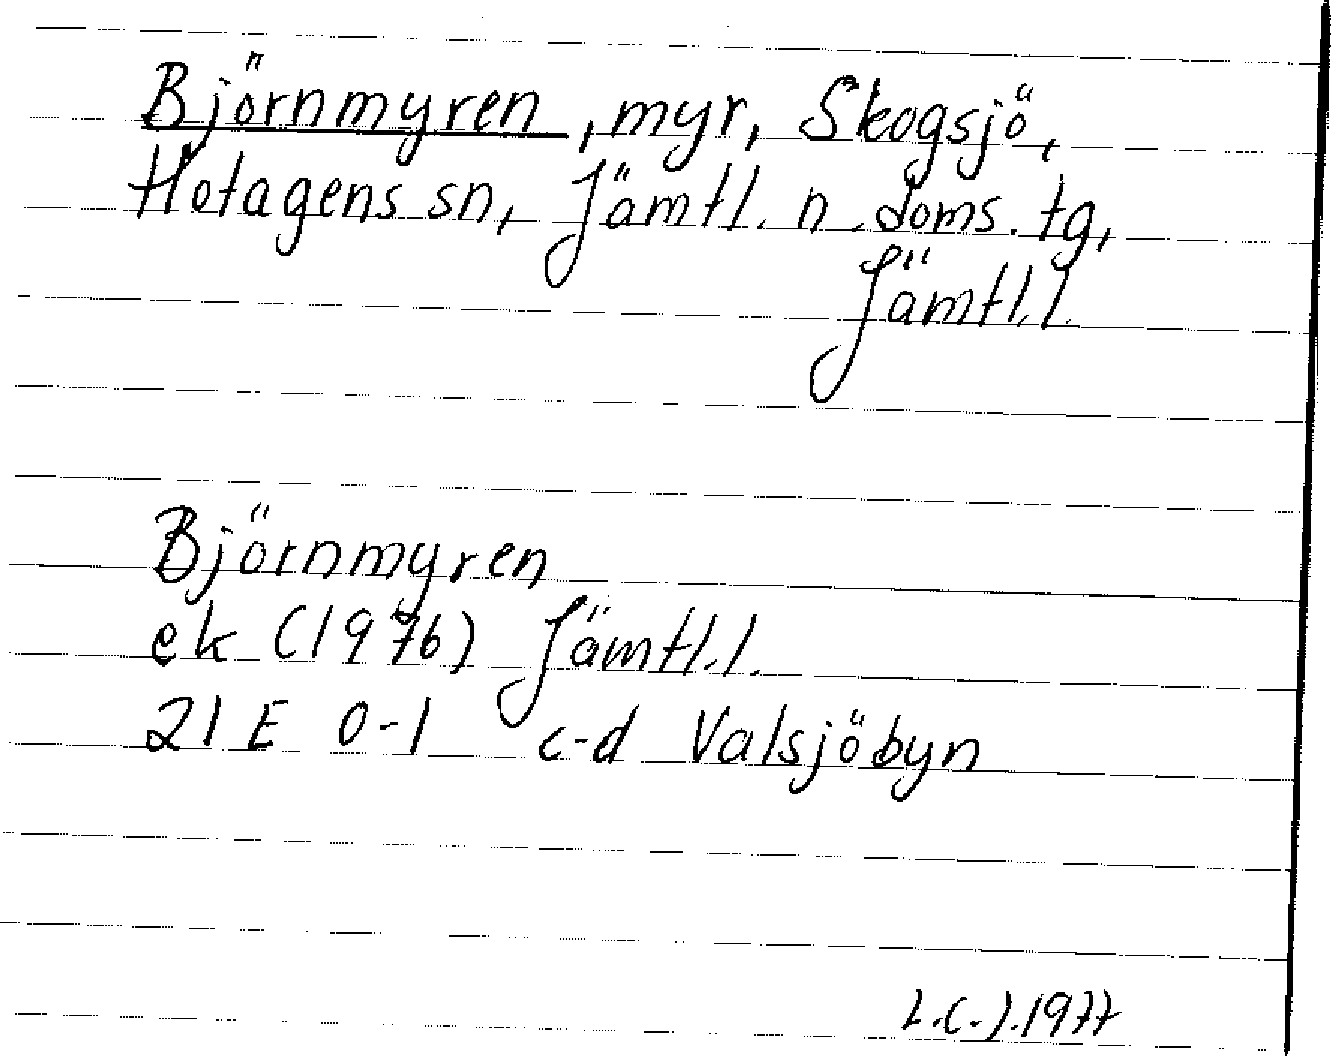 Björnmyren, myr, Skogsjö,
Hotagens sn, Jämtl. n. doms. tg,
Jämtl.l.
Björnmyren
ek (1976) Jämtl.l.
21 E 0-1 c-d Valsjöbyn
L.C.J.1977